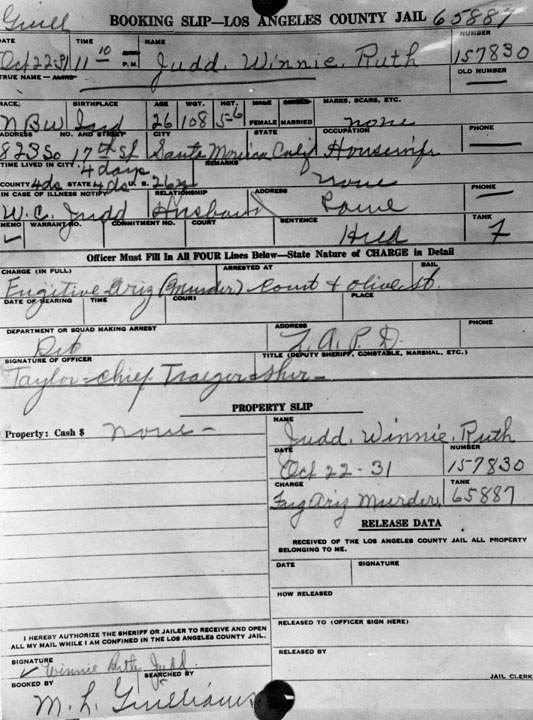 BOOKING SLIP—LOS ANGELES COUNTY JAIL 65887
DATE TIME NAME NUMBER
Oct 22 31 11 10 P.M. Judd, Winnie, Ruth 157830
TRUE NAME— ALIAS OLD NUMBER
RACE, BIRTHPLACE AGE WGT. HGT. MALE FEMALE SINGLE MARRIED MARKS, SCARS, ETC.
Ind 26 108 5-6 none
ADDRESS NO. AND STREET CITY STATE OCCUPATION PHONE
823 So 17th St Santa Monica Calif Housewife
TIME LIVED IN CITY 4 days REMARKS
COUNTY 4ds STATE 4ds U. S. 26y none
IN CASE OF ILLNESS NOTIFY RELATIONSHIP ADDRESS PHONE
W. C. Judd Husband Same
MEMO WARRANT NO. COMMITMENT NO. COURT SENTENCE TANK
Held 7
Officer Must Fill In All FOUR Lines Below—State Nature of CHARGE in Detail
CHARGE (IN FULL) ARRESTED AT BAIL
Fugitive Ariz (Murder) Court & Olive St.
DATE OF HEARING TIME COURT PLACE
DEPARTMENT OR SQUAD MAKING ARREST ADDRESS PHONE
Det L. A. P. D.
SIGNATURE OF OFFICER TITLE (DEPUTY SHERIFF, CONSTABLE, MARSHAL, ETC.)
Taylor - Chief Traeger - Sher -
PROPERTY SLIP
Property: Cash $ none -
NAME
Judd, Winnie, Ruth
DATE NUMBER
Oct 22-31 157830
CHARGE TANK
Fug Ariz Murder 65887
RELEASE DATA
RECEIVED OF THE LOS ANGELES COUNTY JAIL ALL PROPERTY
BELONGING TO ME.
DATE SIGNATURE
HOW RELEASED
RELEASED TO (OFFICER SIGN HERE)
RELEASED BY
JAIL CLERK
I HEREBY AUTHORIZE THE SHERIFF OR JAILER TO RECEIVE AND OPEN
ALL MY MAIL WHILE I AM CONFINED IN THE LOS ANGELES COUNTY JAIL.
SIGNATURE
Winnie Ruth Judd
BOOKED BY SEARCHED BY
M. L.